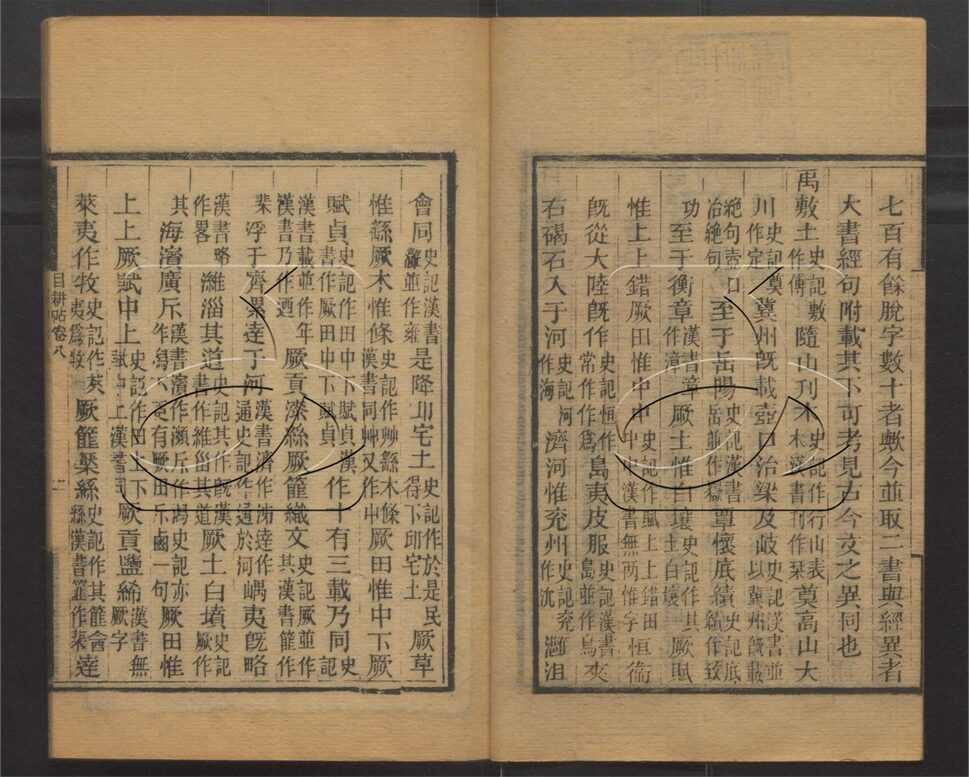 七百有餘脫字數十者歟今並取二書與經異者
大書經句附載其下可考見古今文之異同也
禹敷土史記敷作傅隨山刊木史記作行山表木漢書刊作栞奠高山大
川史記奠作定冀州旣載壺口治梁及岐史記漢書並以冀州旣載絕句壺口治絕句至于岳陽史記漢書岳並作嶽覃懷厎績史記厎績作致
功至于衡章漢書章作漳厥土惟白壤史記作其土白壤厥賦
惟上上錯厥田惟中中史記作賦上上錯田中中漢書無兩惟字恒衞
旣從大陸旣作史記恒作常作作爲島夷皮服史記漢書島並作鳥夾
右碣石入于河史記河作海濟河惟兗州史記兗作沇灉沮
會同史記漢書灉並作雍是降丘宅土史記作於是民得下邱宅土厥草
惟繇厥木惟條史記作艸繇木條漢書同艸又作屮厥田惟中下厥
賦貞史記作田中下賦貞漢書作厥田中下賦貞作十有三載乃同史記
漢書載並作年漢書乃作逎厥貢漆絲厥篚織文史記厥並作其漢書篚作
棐浮于濟漯達于河漢書濟作泲達作通史記作通於河嵎夷旣略
漢書略作畧濰淄其道史記其作旣漢書作維甾其道厥土白墳史記厥作
其海濱廣斥漢書濱作瀕斥作潟史記亦作潟又更有厥田斥鹵一句厥田惟
上上厥賦中上史記作田上下賦中上漢書同厥貢鹽絺漢書無厥字
萊夷作牧史記作萊夷爲牧厥篚檿絲史記作其篚酓絲漢書篚作棐達
目耕帖卷八